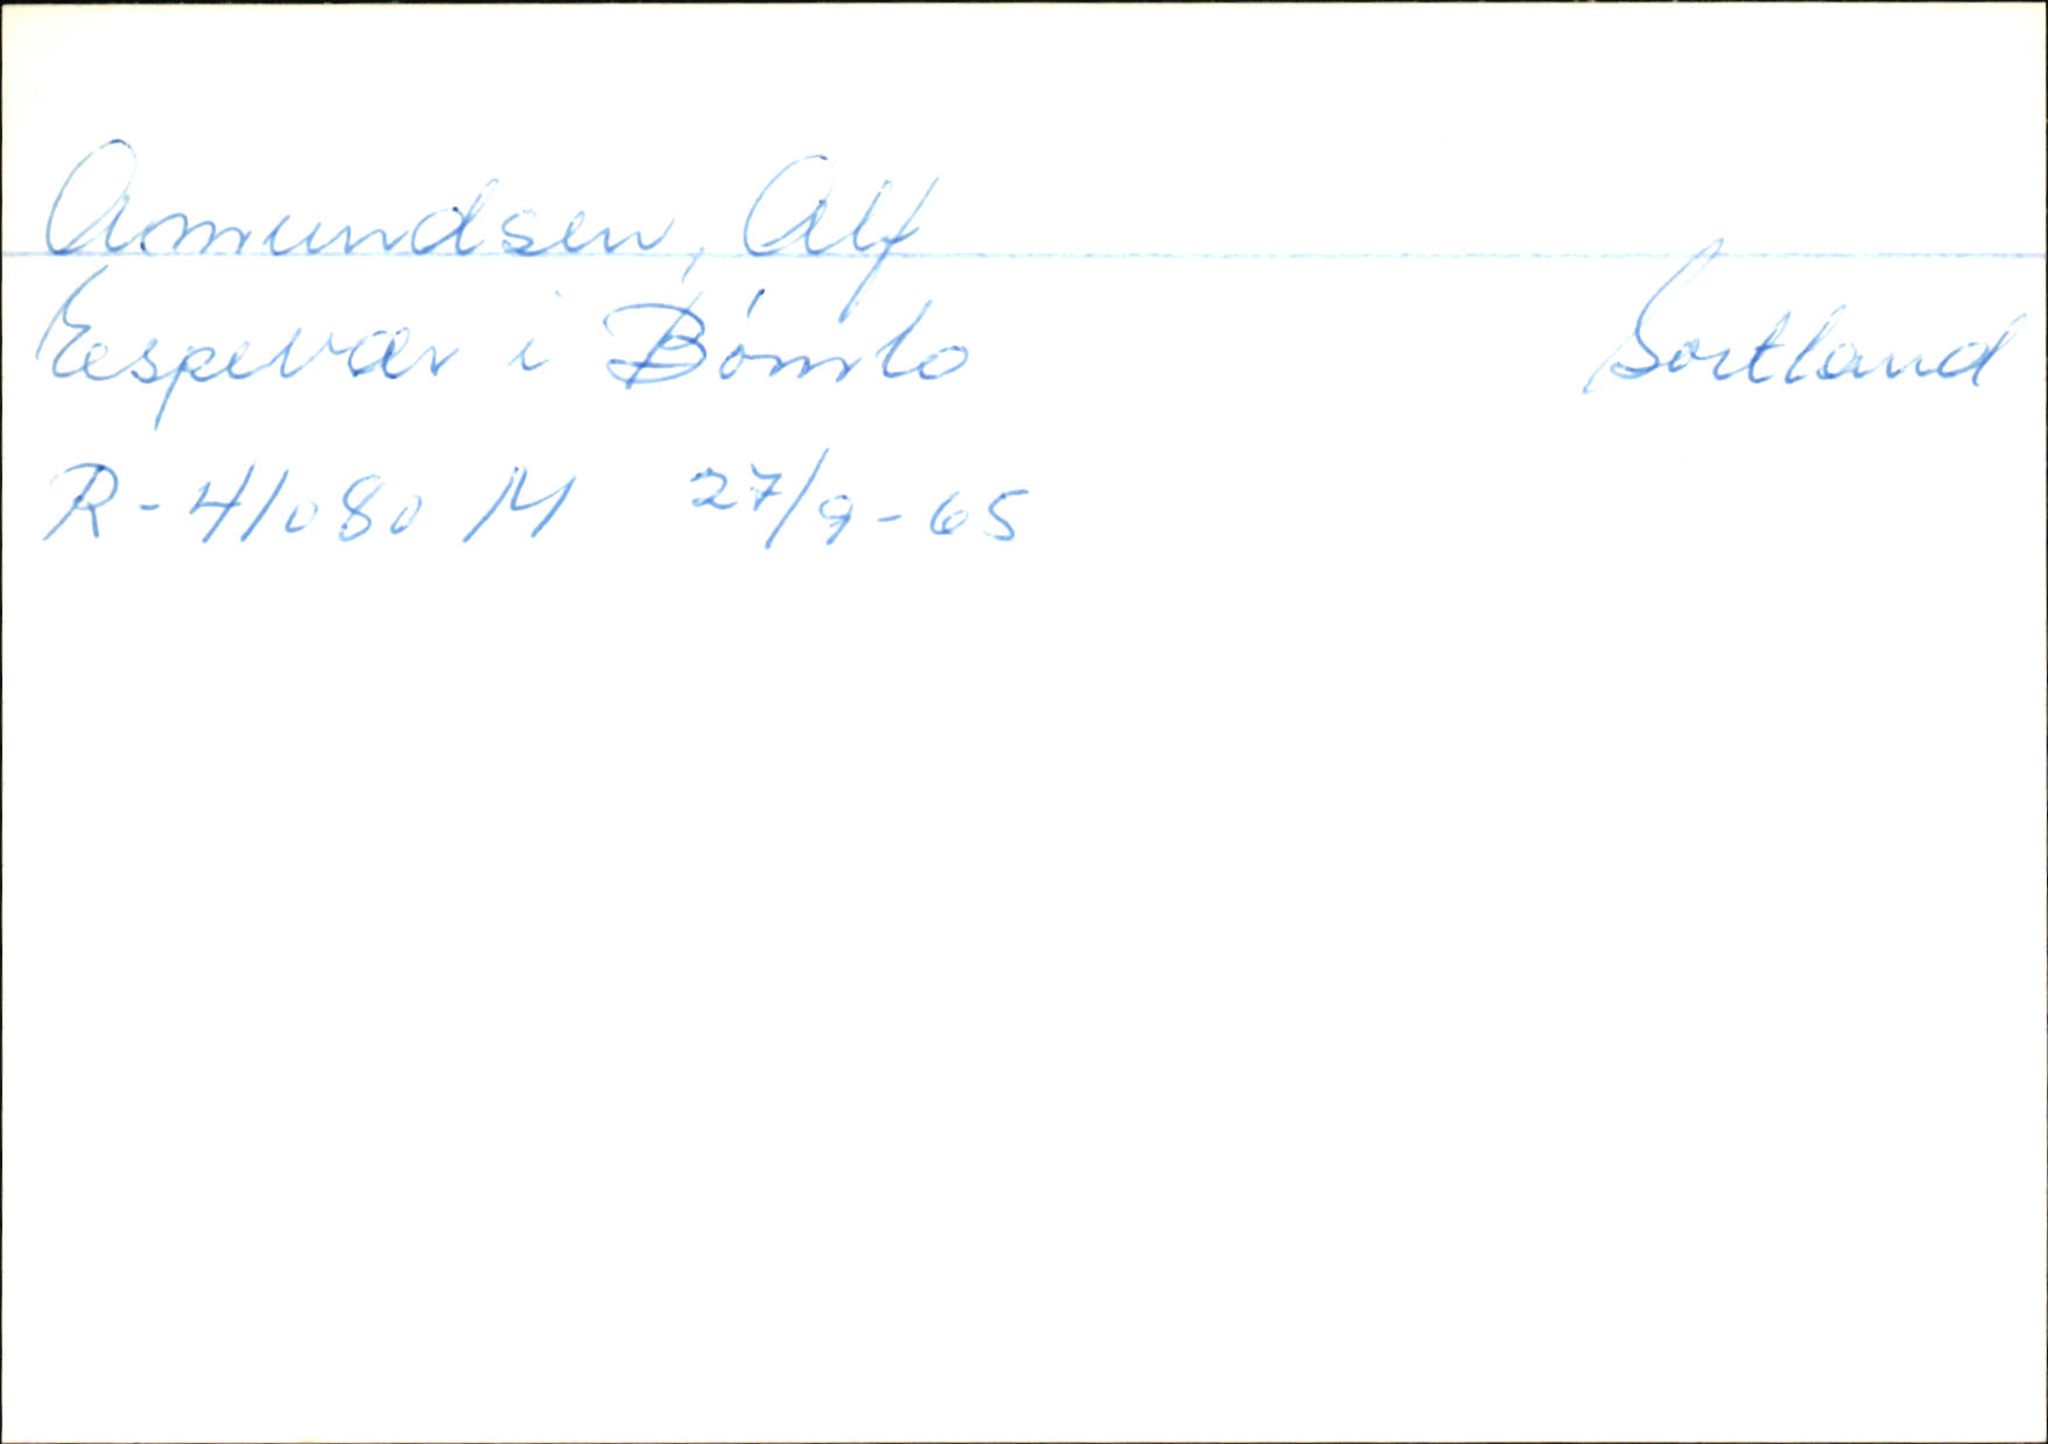 Amundsen, Alf
Espevær i Bømlo Sortland
R-41080 M 27/9-65